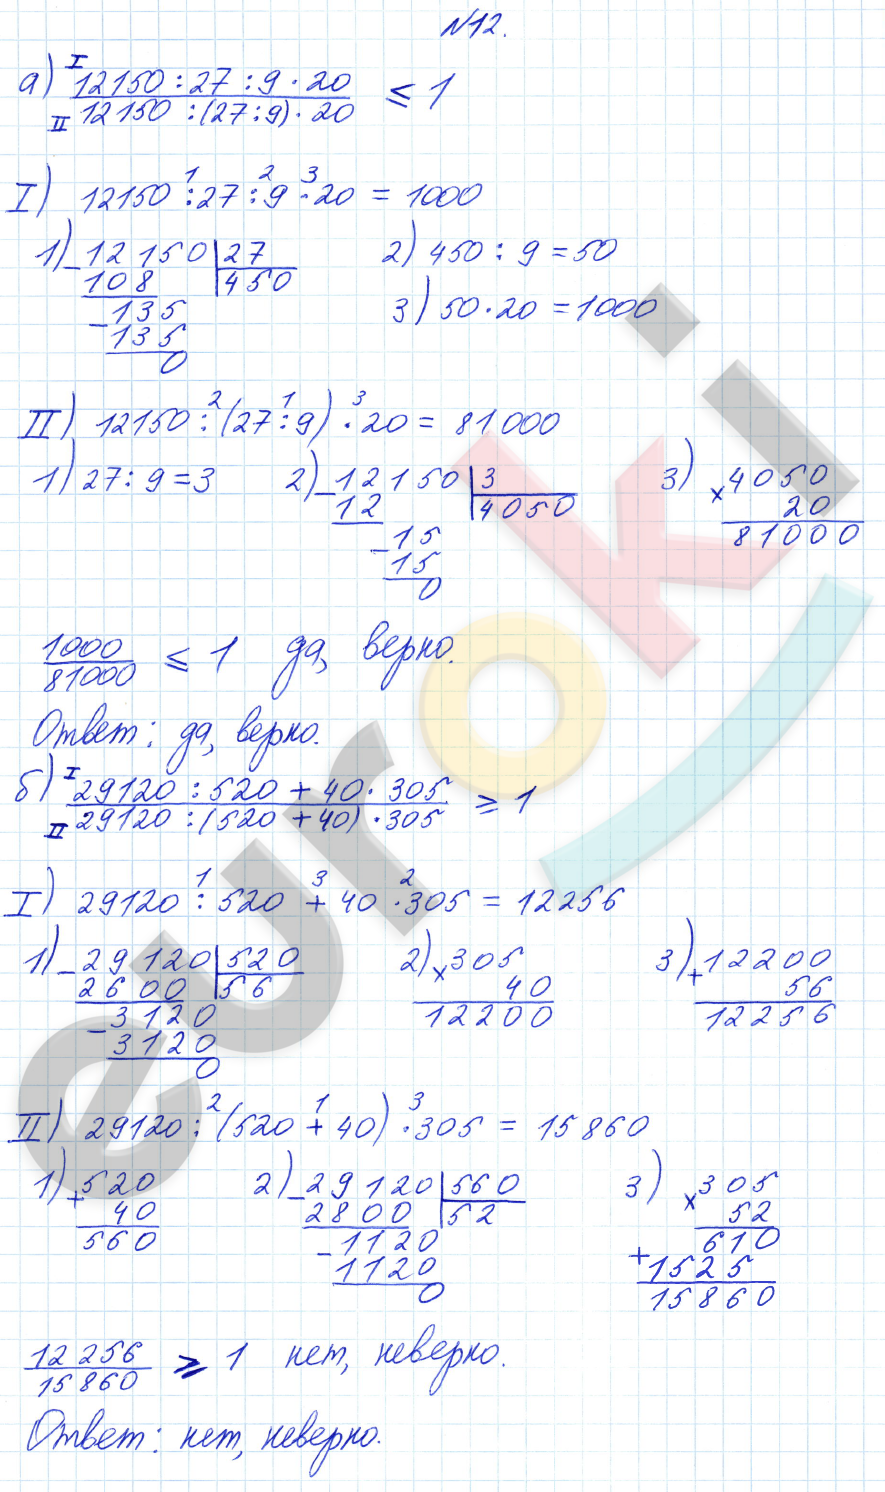 №12.
а) I 12150 : 27 : 9 · 20 ≤ 1
II 12150 : (27 : 9) · 20
1 2 3
I) 12150 : 27 : 9 · 20 = 1000
1) - 12150 27 2) 450 : 9 = 50
108 450
- 135 3) 50 · 20 = 1000
135
0
2 1 3
II) 12150 : (27 : 9) · 20 = 81000
1) 27 : 9 = 3 2) - 12150 3 3) × 4050
12 4050 20
- 15 81000
15
0
1000 ≤ 1 да, верно.
81000
Ответ: да, верно.
б) I 29120 : 520 + 40 · 305 ≥ 1
II 29120 : (520 + 40) · 305
1 3 2
I) 29120 : 520 + 40 · 305 = 12256
1) - 29120 520 2) × 305 3) + 12200
2600 56 40 56
- 3120 12200 12256
3120
0
2 1 3
II) 29120 : (520 + 40) · 305 = 15860
1) + 520 2) - 29120 560 3) × 305
40 2800 52 52
560 - 1120 610
1120 + 1525
0 15860
12256 ≥ 1 нет, неверно.
15860
Ответ: нет, неверно.
euroki